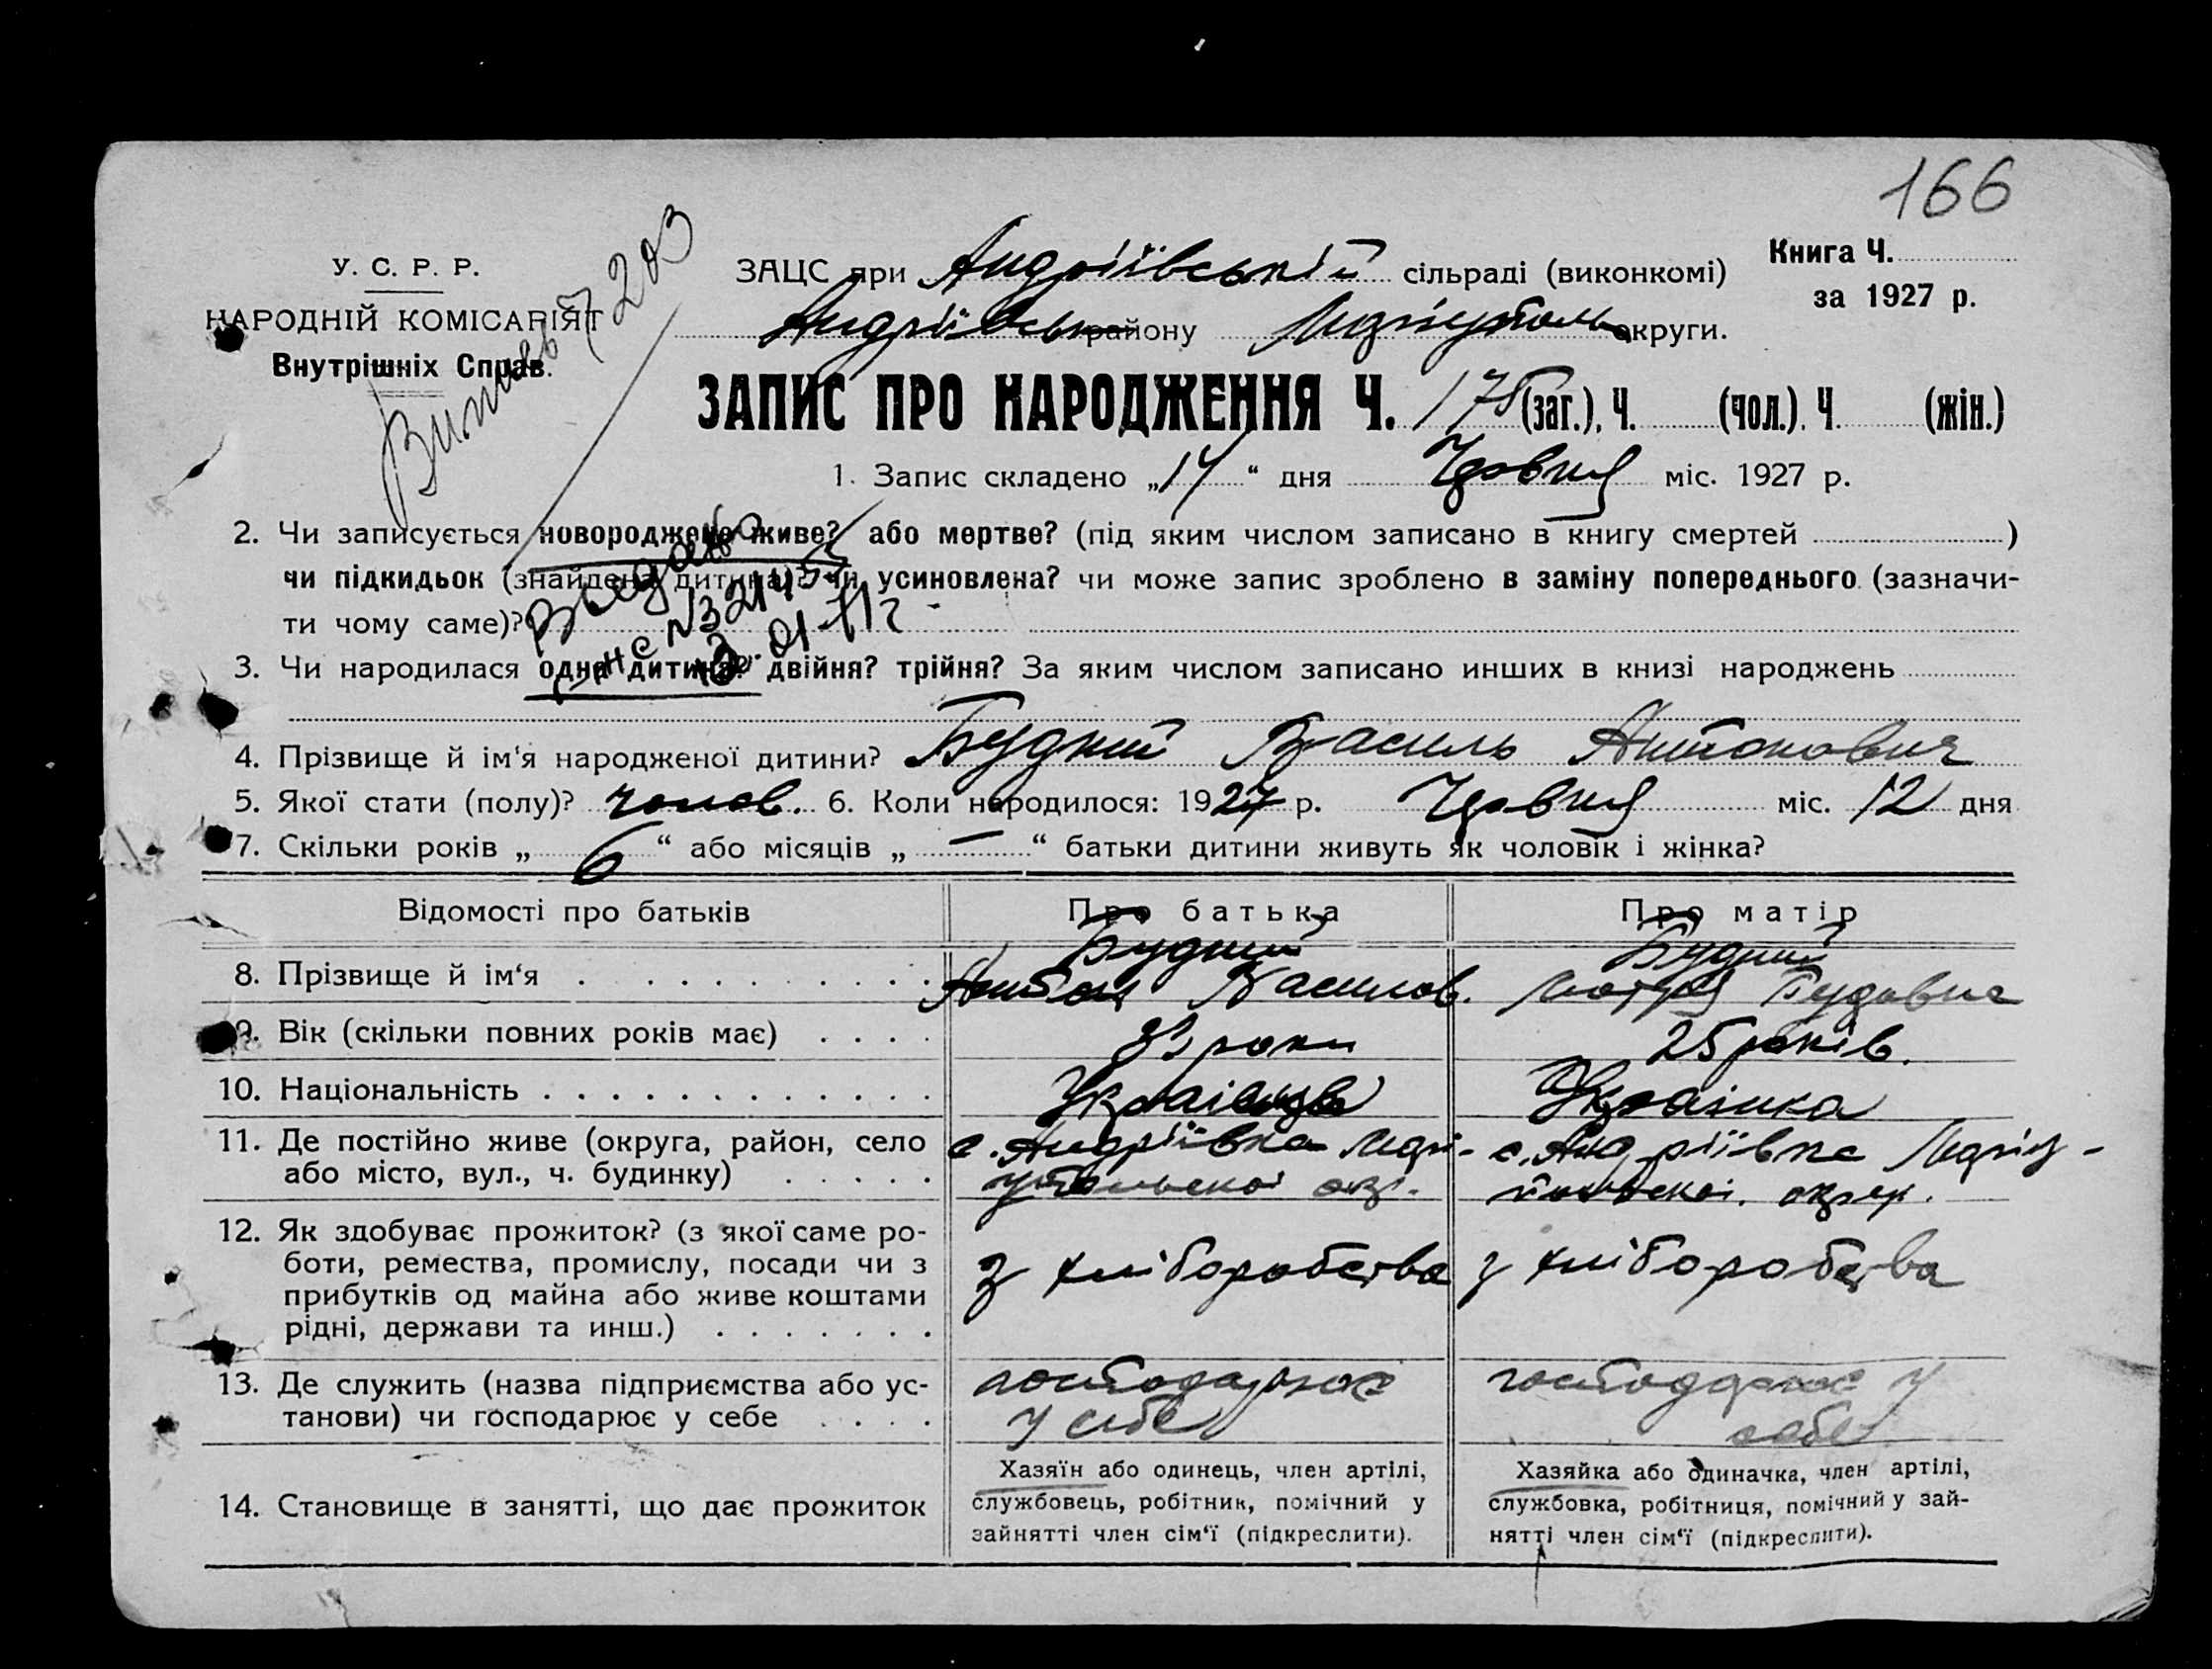 166
У. С. Р. Р.
НАРОДНІЙ КОМІСАРІЯТ
Внутрішніх Справ.
203
ЗАЦС при Андріївській сільраді (виконкомі)
Андріївськ району Маріупольс округи.
Книга Ч.
за 1927 р.
ЗАПИС ПРО НАРОДЖЕННЯ Ч. 175 (заг.), Ч. (чол.), Ч. (жін.)
1. Запис складено „14“ дня Червня міс. 1927 р.
2. Чи записується новороджене живе? або мертве? (під яким числом записано в книгу смертей )
чи підкидьок (знайдена дитина)? чи усиновлена? чи може запис зроблено в заміну попереднього (зазначи-
ти чому саме)?
3. Чи народилася одна дитина? двійня? трійня? За яким числом записано инших в книзі народжень
4. Прізвище й ім‘я народженої дитини? Будний Василь Антонович
5. Якої стати (полу)? чолов. 6. Коли народилося: 1927 р. Червня міс. 12 дня
7. Скільки років „ 6 “ або місяців „ — “ батьки дитини живуть як чоловік і жінка?
Відомості про батьків Про батька Про матір
Будний Будний
8. Прізвище й ім‘я Антон Васильов.
9. Вік (скільки повних років має) роки 25 років.
10. Національність Українець Українка
11. Де постійно живе (округа, район, село с. Андріївка Марі- с. Андріївка Маріу-
або місто, вул., ч. будинку) упольської окр. польскої. округ.
12. Як здобуває прожиток? (з якої саме ро-
боти, ремества, промислу, посади чи з з хліборобства з хліборобства
прибутків од майна або живе коштами
рідні, держави та инш.)
13. Де служить (назва підприємства або ус- господарює господарює у
танови) чи господарює у себе у себе себе
14. Становище в занятті, що дає прожиток
Хазяїн або одинець, член артілі,
службовець, робітник, помічний у
зайнятті член сім‘ї (підкреслити).
Хазяйка або одиначка, член артілі,
службовка, робітниця, помічний у зай-
нятті член сім‘ї (підкреслити).